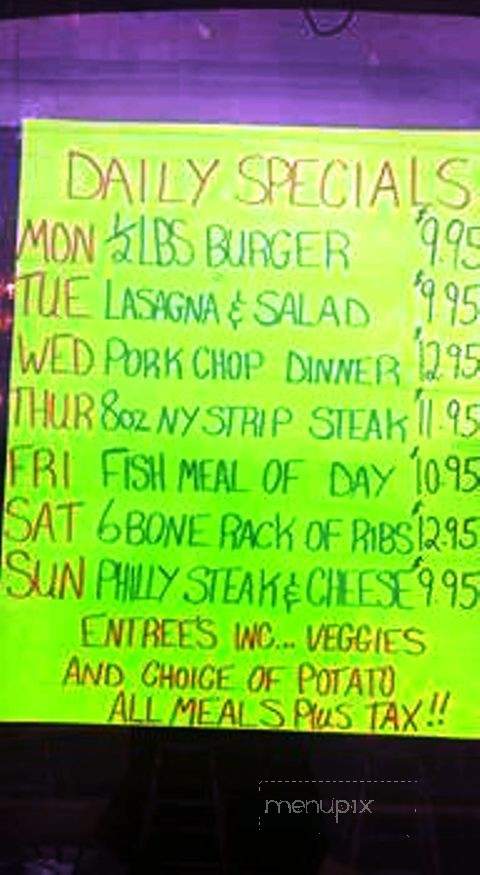 DAILY SPECIALS
MON ½ LBS BURGER $9.95
TUE LASAGNA & SALAD $9.95
WED PORK CHOP DINNER $12.95
THUR 8oz NY STRIP STEAK $11.95
FRI FISH MEAL OF DAY $10.95
SAT 6 BONE RACK OF RIBS $12.95
SUN PHILLY STEAK & CHEESE $9.95
ENTREE'S INC... VEGGIES
AND CHOICE OF POTATO
ALL MEALS PLUS TAX!!
menupix